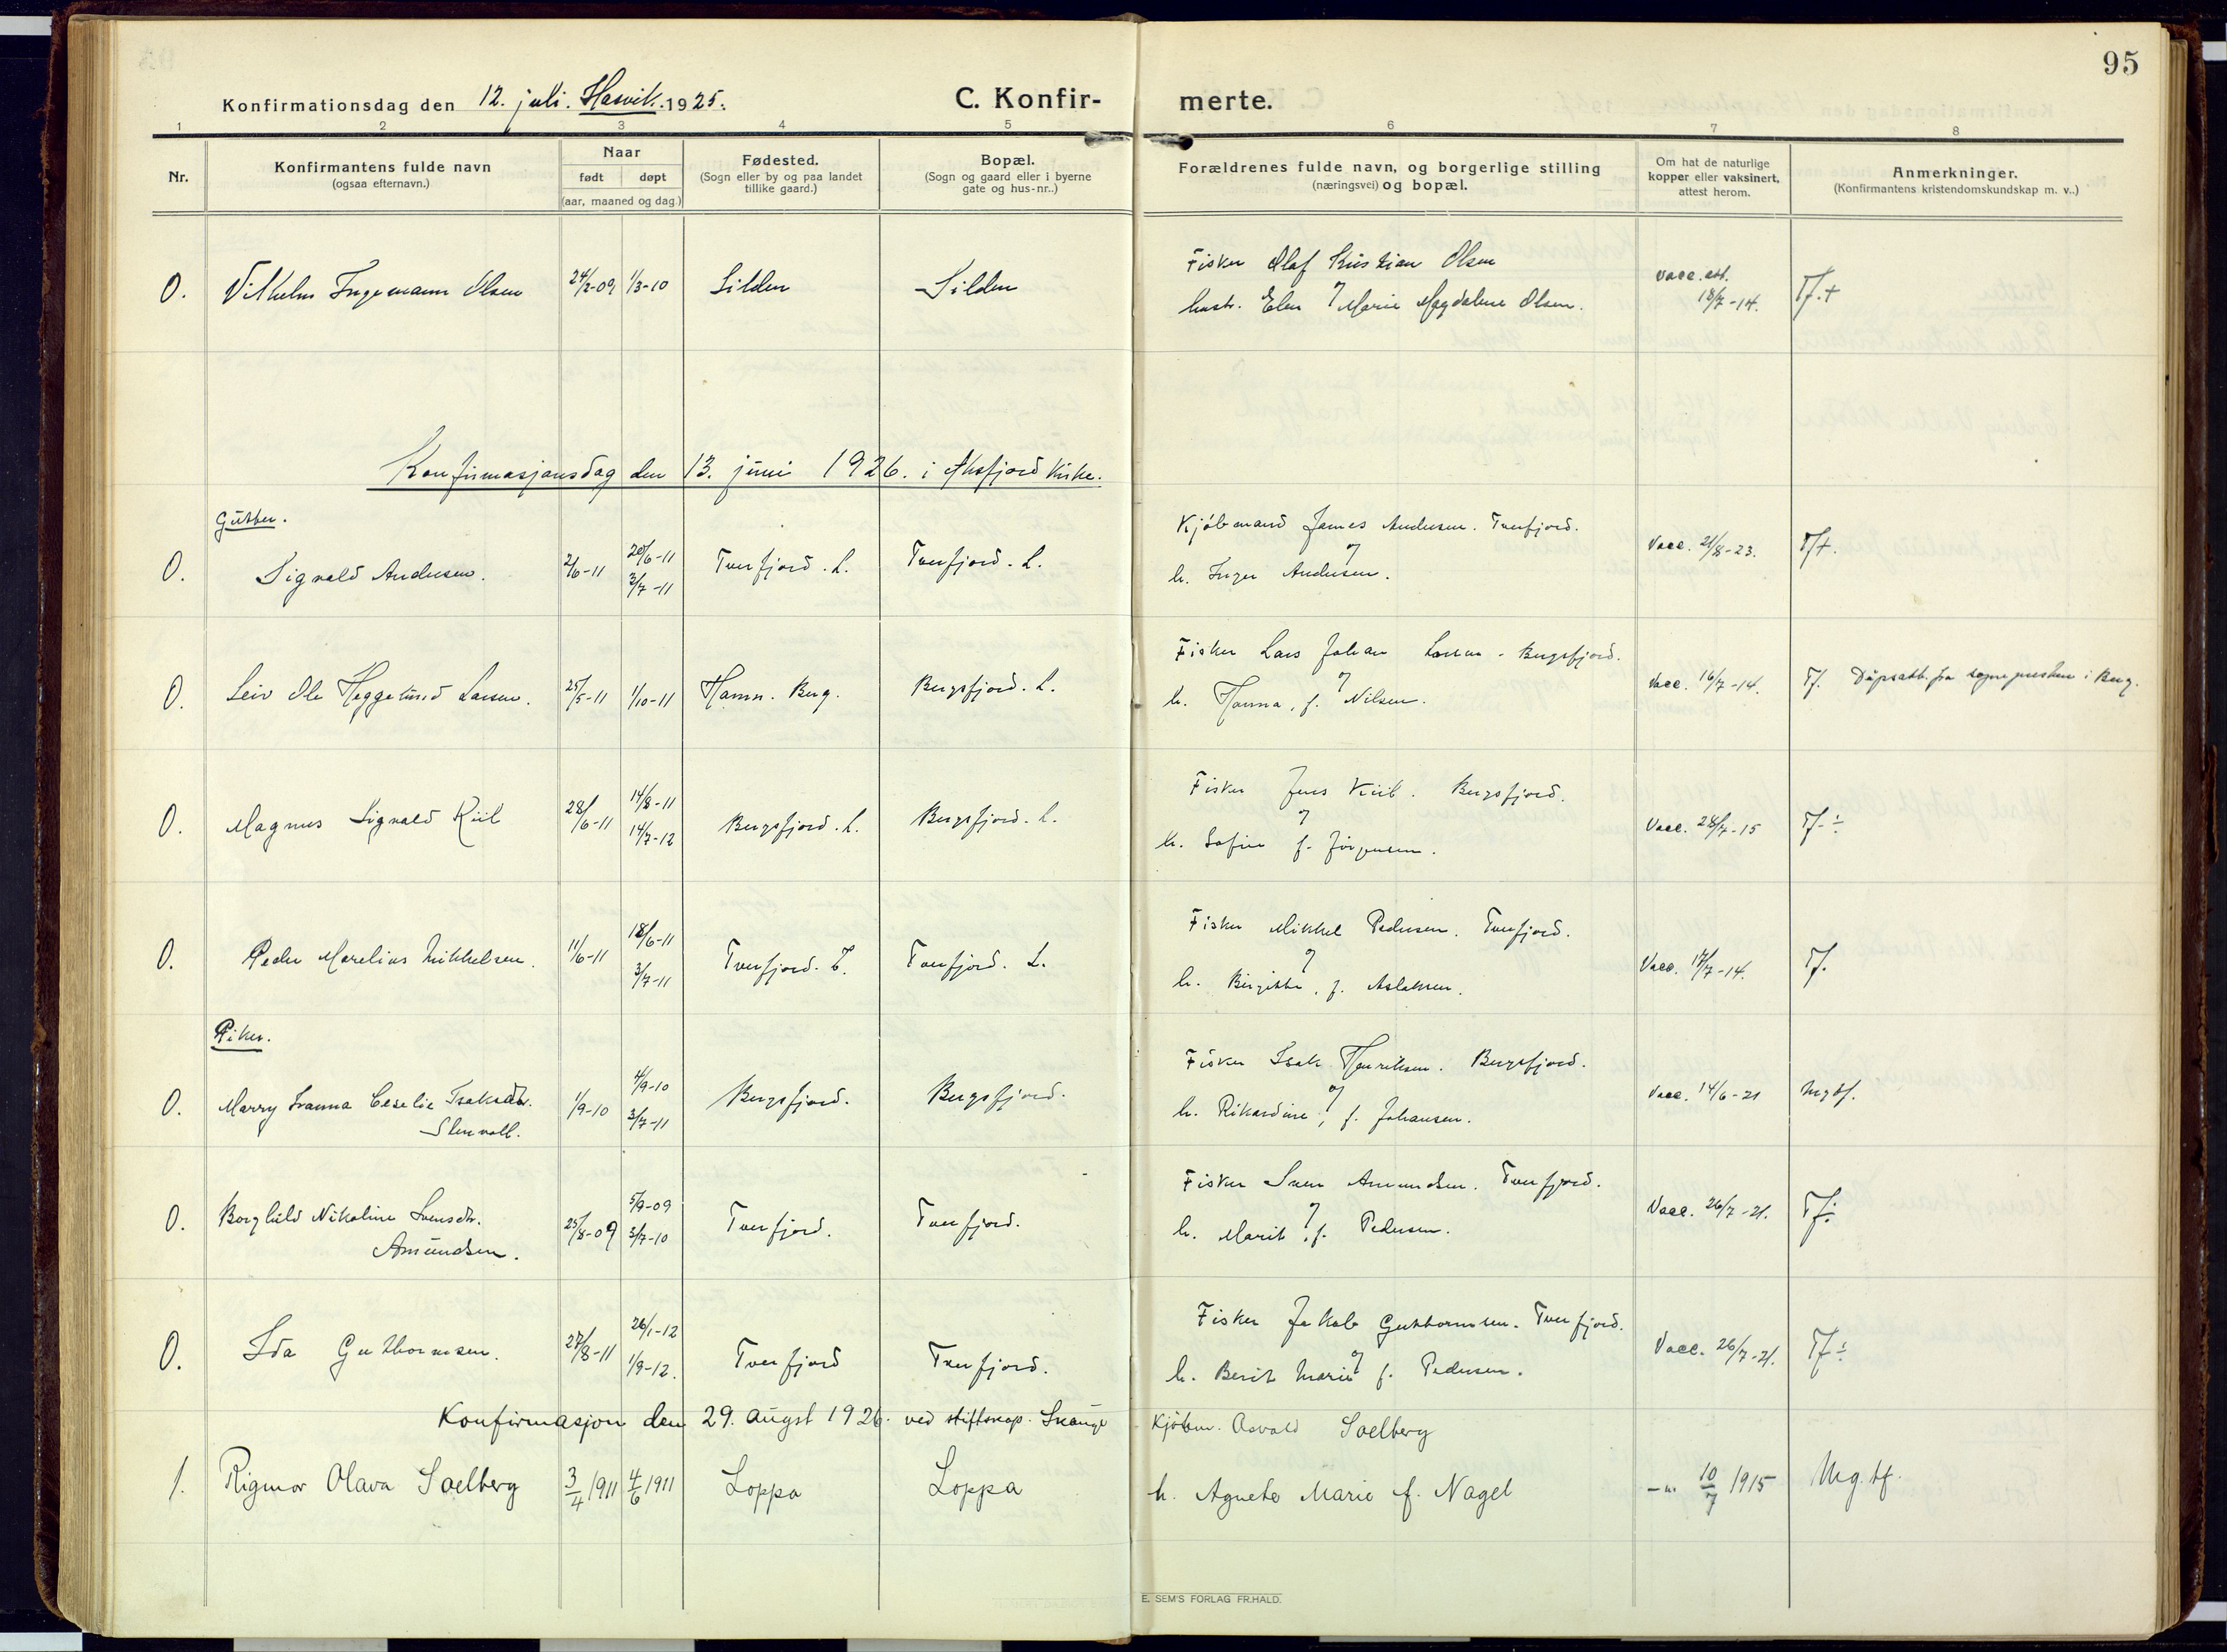 95
Konfirmationsdag den 12. juli. Hasvik. 1925. C. Konfir- merte.
1 2 3 4 5 6 7 8
Nr.
Konfirmantens fulde navn
(ogsaa efternavn.)
Naar
født døpt
(aar, maaned og dag.)
Fødested.
(Sogn eller by og paa landet
tillike gaard.)
Bopæl.
(Sogn og gaard eller i byerne
gate og hus-nr..)
Forældrenes fulde navn, og borgerlige stilling
(næringsvei) og bopæl.
Om hat de naturlige
kopper eller vaksinert,
attest herom.
Anmerkninger.
(Konfirmantens kristendomskundskap m. v..)
0. Vilhelm Ingemann Olsen 1/3-10 Silden Silden
Fisker Olaf Kristian Olsen
og
hustr. Elen Marie Magdalene Olsen.
vacc. att.
18/7-14.
Tf.+
Konfirmasjonsdag den 13. juni 1926. i Øksfjord kirke.
Gutter.
0. Sigvald Andersen. 2/6-11 20/6-11 3/7-11 Tverfjord. L. Tverfjord. L.
Kjøbmand James Andersen. Tverfjord.
og
h. Inger Andersen.
Vacc. 21/8-23. Tf+.
0. Leiv Ole Heggelund Larsen. 25/5-11 1/10-11 Hamn. Berg. Bergsfjord. L.
Fisker Lars Johan Larsen - Bergsfjord.
og
h. Hanna, f. Nilsen.
Vacc. 16/7-14. Tf. Dåpsatt. fra sognepresten i Berg.
0. Magnus Sigvald Kiil 28/6-11 14/8-11 14/7-12 Bergsfjord. L. Bergsfjord. L.
Fisker Jens Kiil. Bergsfjord.
og
h. Sofie f. Jørgensen.
Vacc. 28/7-15 Tf.÷
0. Peder Marelius Mikkelsen. 11/6-11 18/6-11 3/7-11 Tverfjord. L. Tverfjord. L.
Fisker Mikkel Pedersen. Tverfjord.
og
h. Birgitte, f. Aslaksen.
Vacc. 17/7-14. Tf.
Piker.
0. Marry Ivanna Ceselie Isaksdtr.
Stenvoll.
1/9-10 4/9-10 3/7-11 Bergsfjord. Bergsfjord.
Fisker Isak Henriksen. Bergsfjord.
og
h. Rikardine, f. Johansen.
Vacc. 14/6-21 Mgtf.
0. Borghild Nikoline Svensdtr.
Amundsen.
25/8-09 5/9-09 3/7-10 Tverfjord. Tverfjord.
Fisker Sven Amundsen. Tverfjord.
og
h. Marit, f. Pedersen.
Vacc. 26/7-21. Tf÷
0. Ida Guthormsen. 27/8-11 26/1-12 1/9-12. Tverfjord Tverfjord.
Fisker Jakob Guttormsen. Tverfjord.
og
h. Berit Marie f. Pedersen.
Vacc. 26/7-21. Tf÷
Konfirmasjon den 29. august 1926. ved stiftskap. Skauge
1. Rigmor Olava Soelberg 3/4 1911 4/6 1911 Loppa Loppa
Kjøbm. Osvald Soelberg
h. Agnete Marie f. Nagel
-"- 10/7 1915 Mg.tf.
E. SEM'S FORLAG FR.HALD.